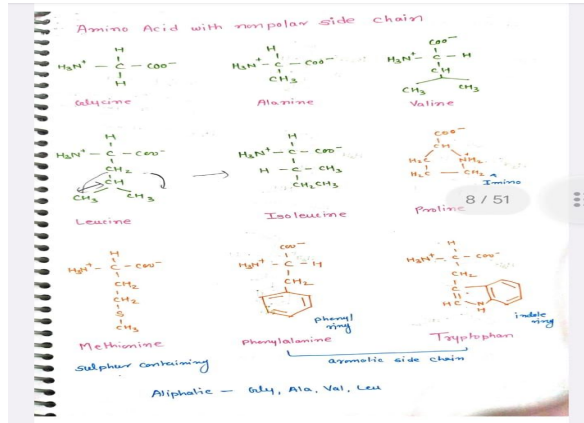 Amino Acid with nonpolar side chain
H
H3N+ - C - COO-
H
Glycine
H
H3N+ - C - COO-
CH3
Alanine
COO-
H3N+ - C - H
CH
CH3 CH3
Valine
H
H3N+ - C - COO-
CH2
CH
CH3 CH3
Leucine
H
H3N+ - C - COO-
H - C - CH3
CH2CH3
Isoleucine
COO-
CH
H2C NH2
H2C - CH2
Imino
Proline
8 / 51
H
H3N+ - C - COO-
CH2
CH2
S
CH3
Methionine
sulphur containing
COO-
H3N+ - C - H
CH2
phenyl
ring
Phenylalanine
H
H3N+ - C - COO-
CH2
C
HC N
H
indole
ring
Tryptophan
aromatic side chain
Aliphatic - Gly, Ala, Val, Leu